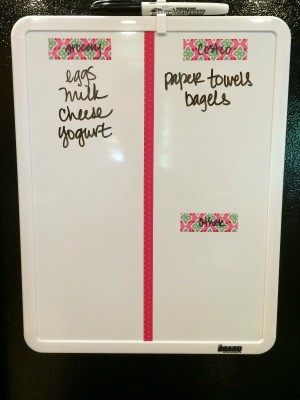 grocery
eggs
milk
cheese
yogurt
costco
paper towels
bagels
other
THE BOARD